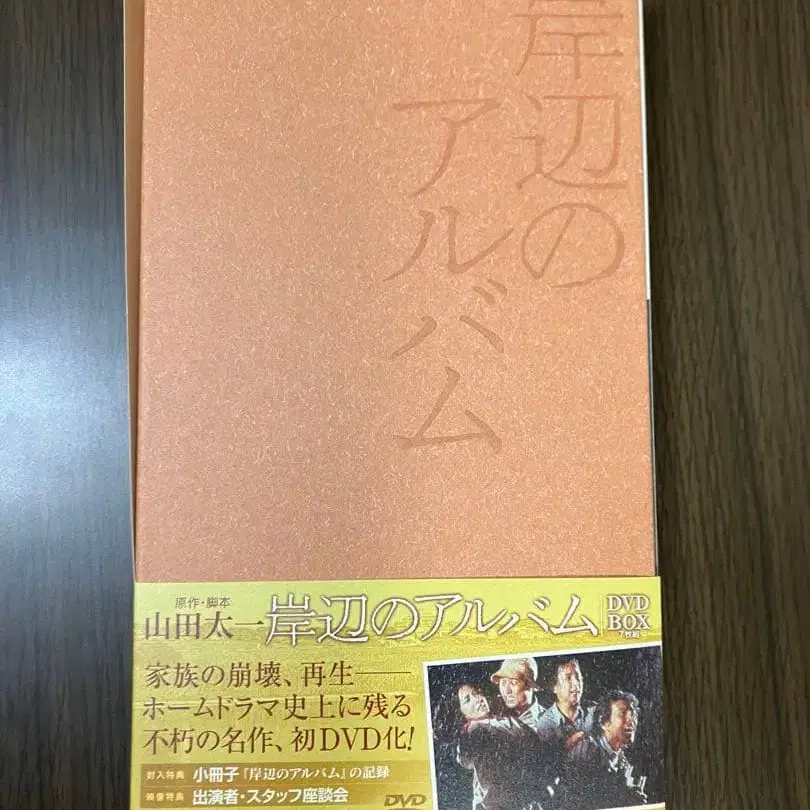 岸辺の
アルバム
原作・脚本
山田太一
岸辺のアルバム
DVD
BOX
7枚組
家族の崩壊、再生――
ホームドラマ史上に残る
不朽の名作、初DVD化!
封入特典 小冊子『岸辺のアルバム』の記録
映像特典 出演者・スタッフ座談会
DVD